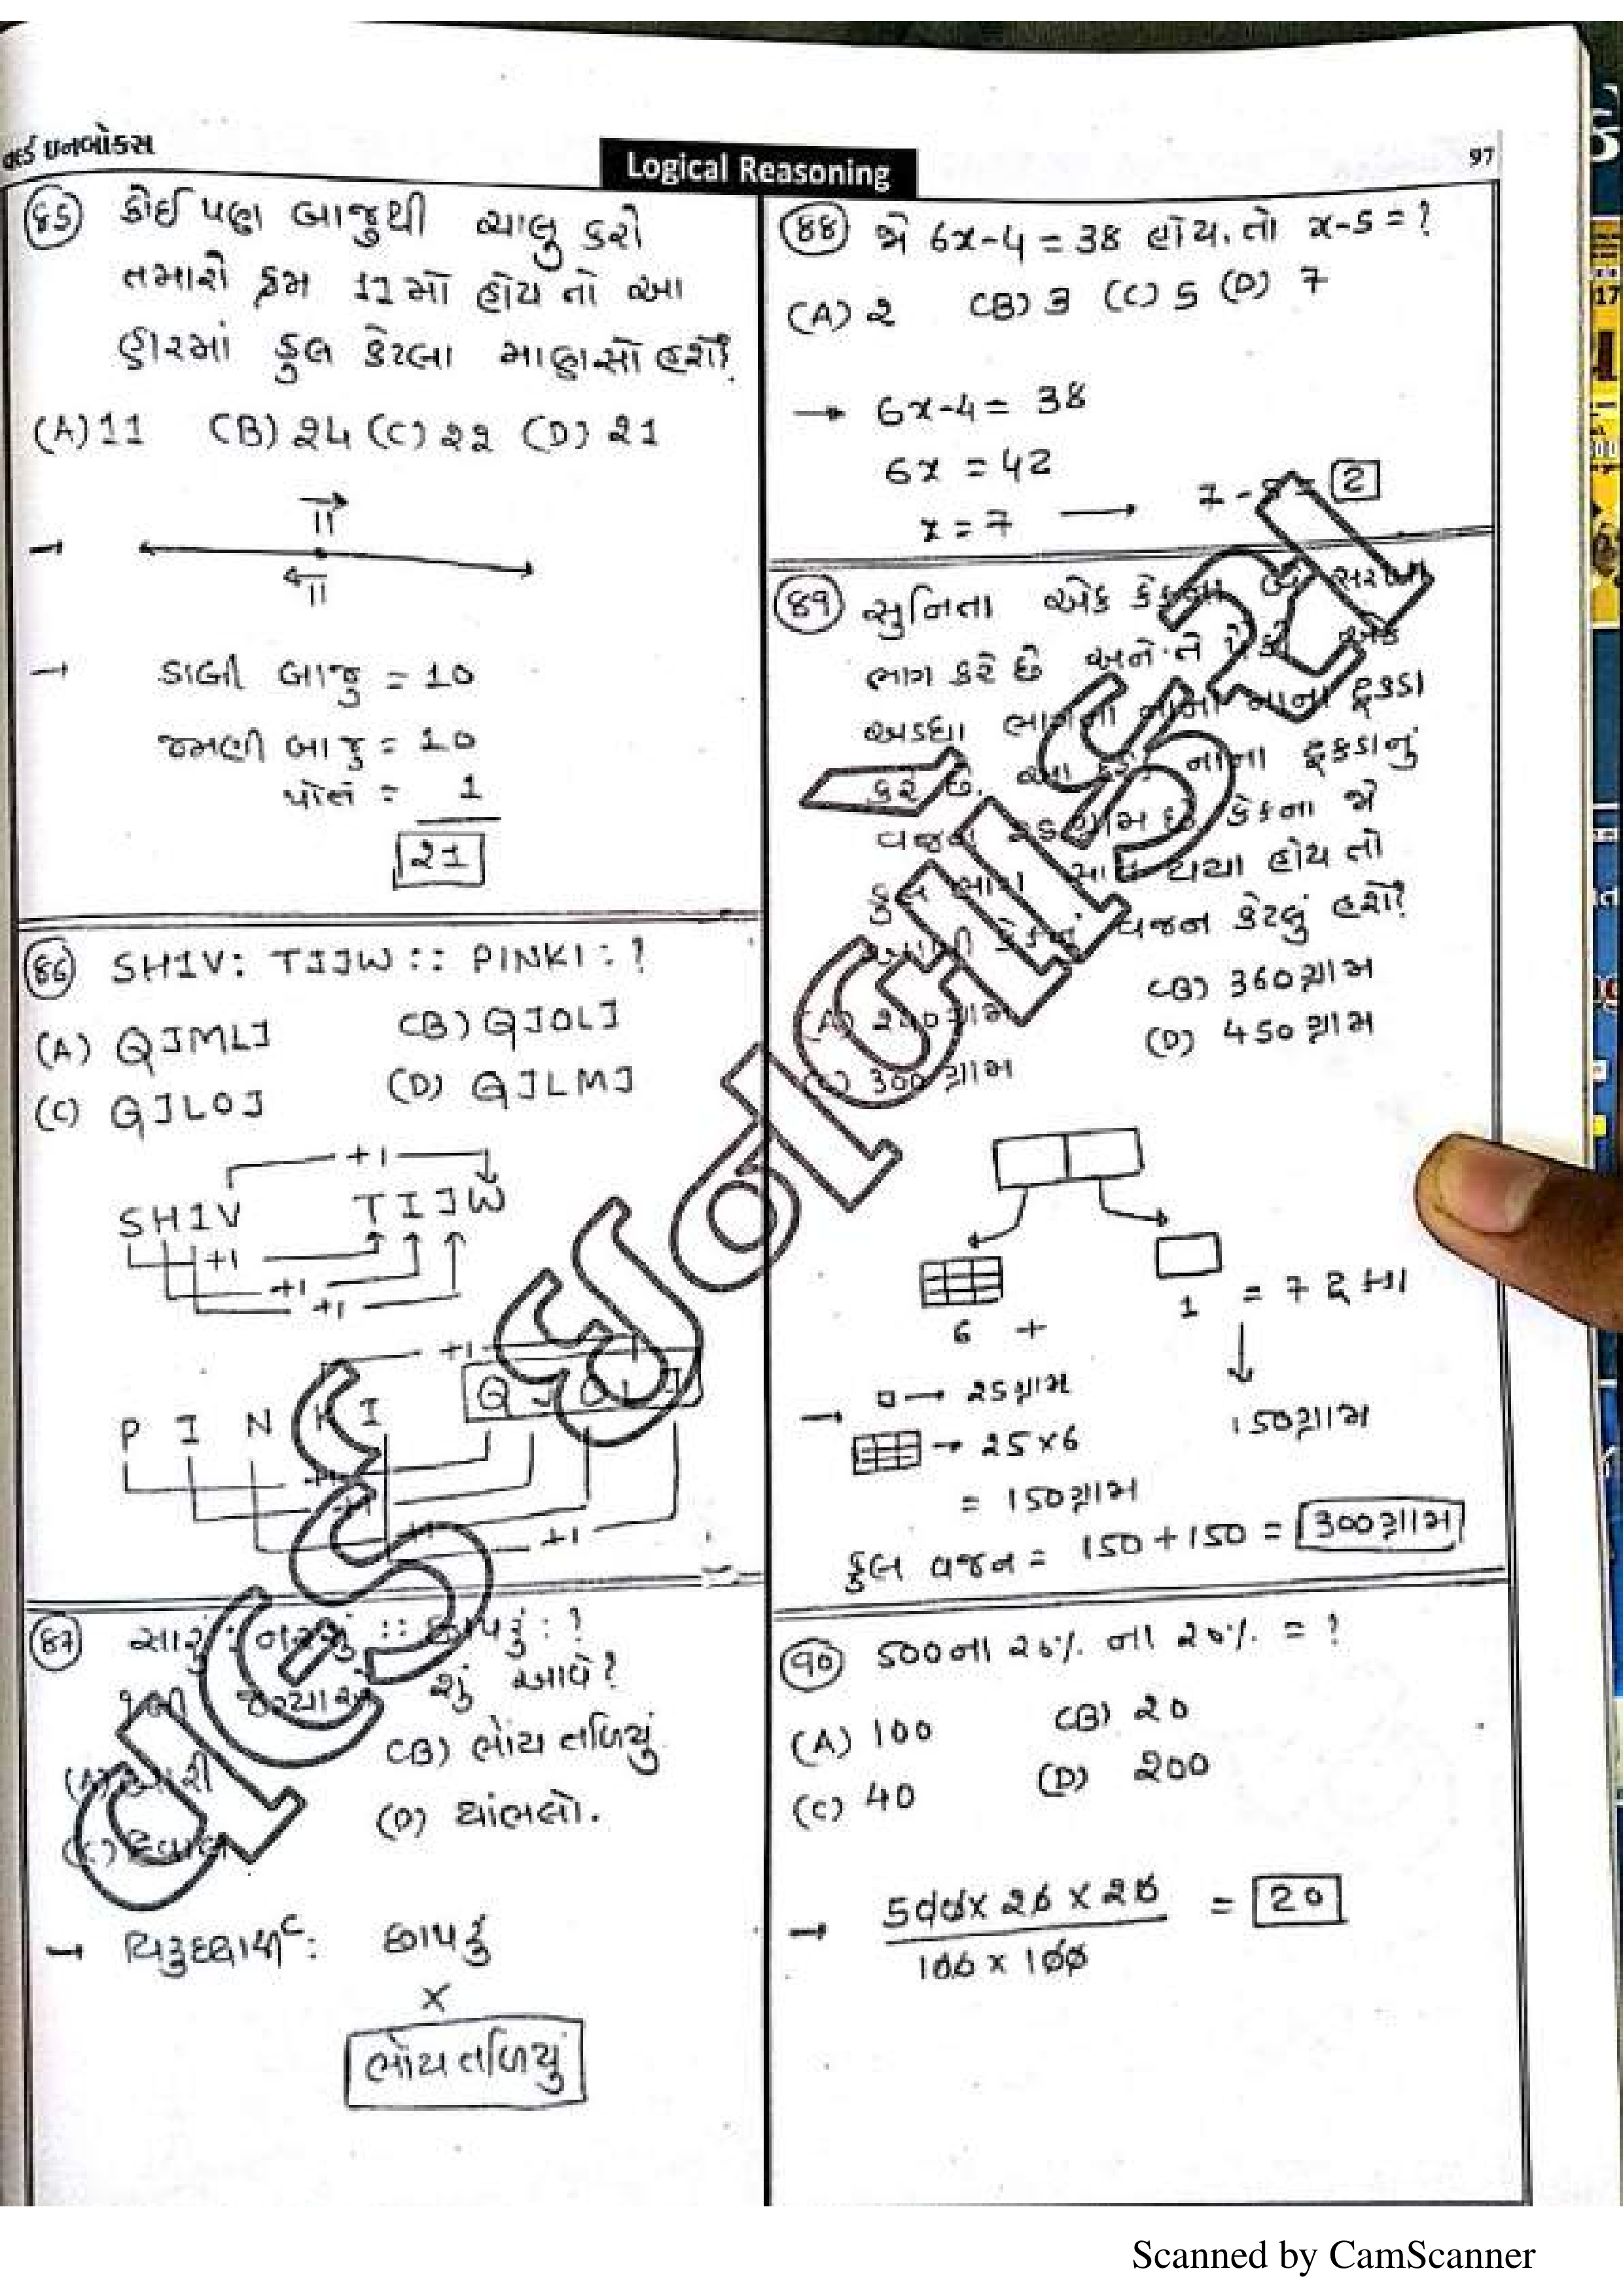 વર્લ્ડ ઇનબોક્સ
Logical Reasoning
97
(85) કોઈ પણ બાજુથી ચાલુ કરો
તમારો ક્રમ 11 મો હોય તો આ
હારમાં કુલ કેટલા માણસો હશે?
(A) 11 (B) 24 (C) 22 (D) 21
11
11
ડાબી બાજુ = 10
જમણી બાજુ = 10
પોતે = 1
21
(86) SHIV: TIJW :: PINKI : ?
(A) QJMLJ (B) QJOLJ
(C) QJLOJ (D) QJLMJ
+1
SHIV TIJW
+1
+1
+1
+1
P I N K I Q J O L J
+1
(87) સારું : નરસું :: છાપરું : ?
ની જગ્યાએ શું આવે?
(B) ભોંય તળિયું
(D) થાંભલો.
→ વિરુદ્ધાર્થી : છાપરું
×
ભોંય તળિયું
(88) જો 6x-4 = 38 હોય, તો x-5 = ?
(A) 2 (B) 3 (C) 5 (D) 7
→ 6x-4 = 38
6x = 42
x = 7 → 7 - 5 = 2
(89) સુનિતા એક કેકના બે સરખા
ભાગ કરે છે અને તે પૈકી એક
અડધા ભાગના નાના નાના ટુકડા
કરે છે. આ દરેક નાના ટુકડાનું
વજન ગ્રામ છે કેકના જો
કુલ ભાગ સાત થયા હોય તો
કેકનું વજન કેટલું હશે?
(A) ગ્રામ (B) 360 ગ્રામ
(C) 300 ગ્રામ (D) 450 ગ્રામ
6 + 1 = 7 ટુકડા
→ 25 ગ્રામ
150 ગ્રામ
→ 25 × 6
= 150 ગ્રામ
કુલ વજન = 150 + 150 = 300 ગ્રામ
(90) 500 ના 20% ના 20% = ?
(A) 100 (B) 20
(C) 40 (D) 200
→ 500 × 20 × 20 = 20
100 × 100
Scanned by CamScanner